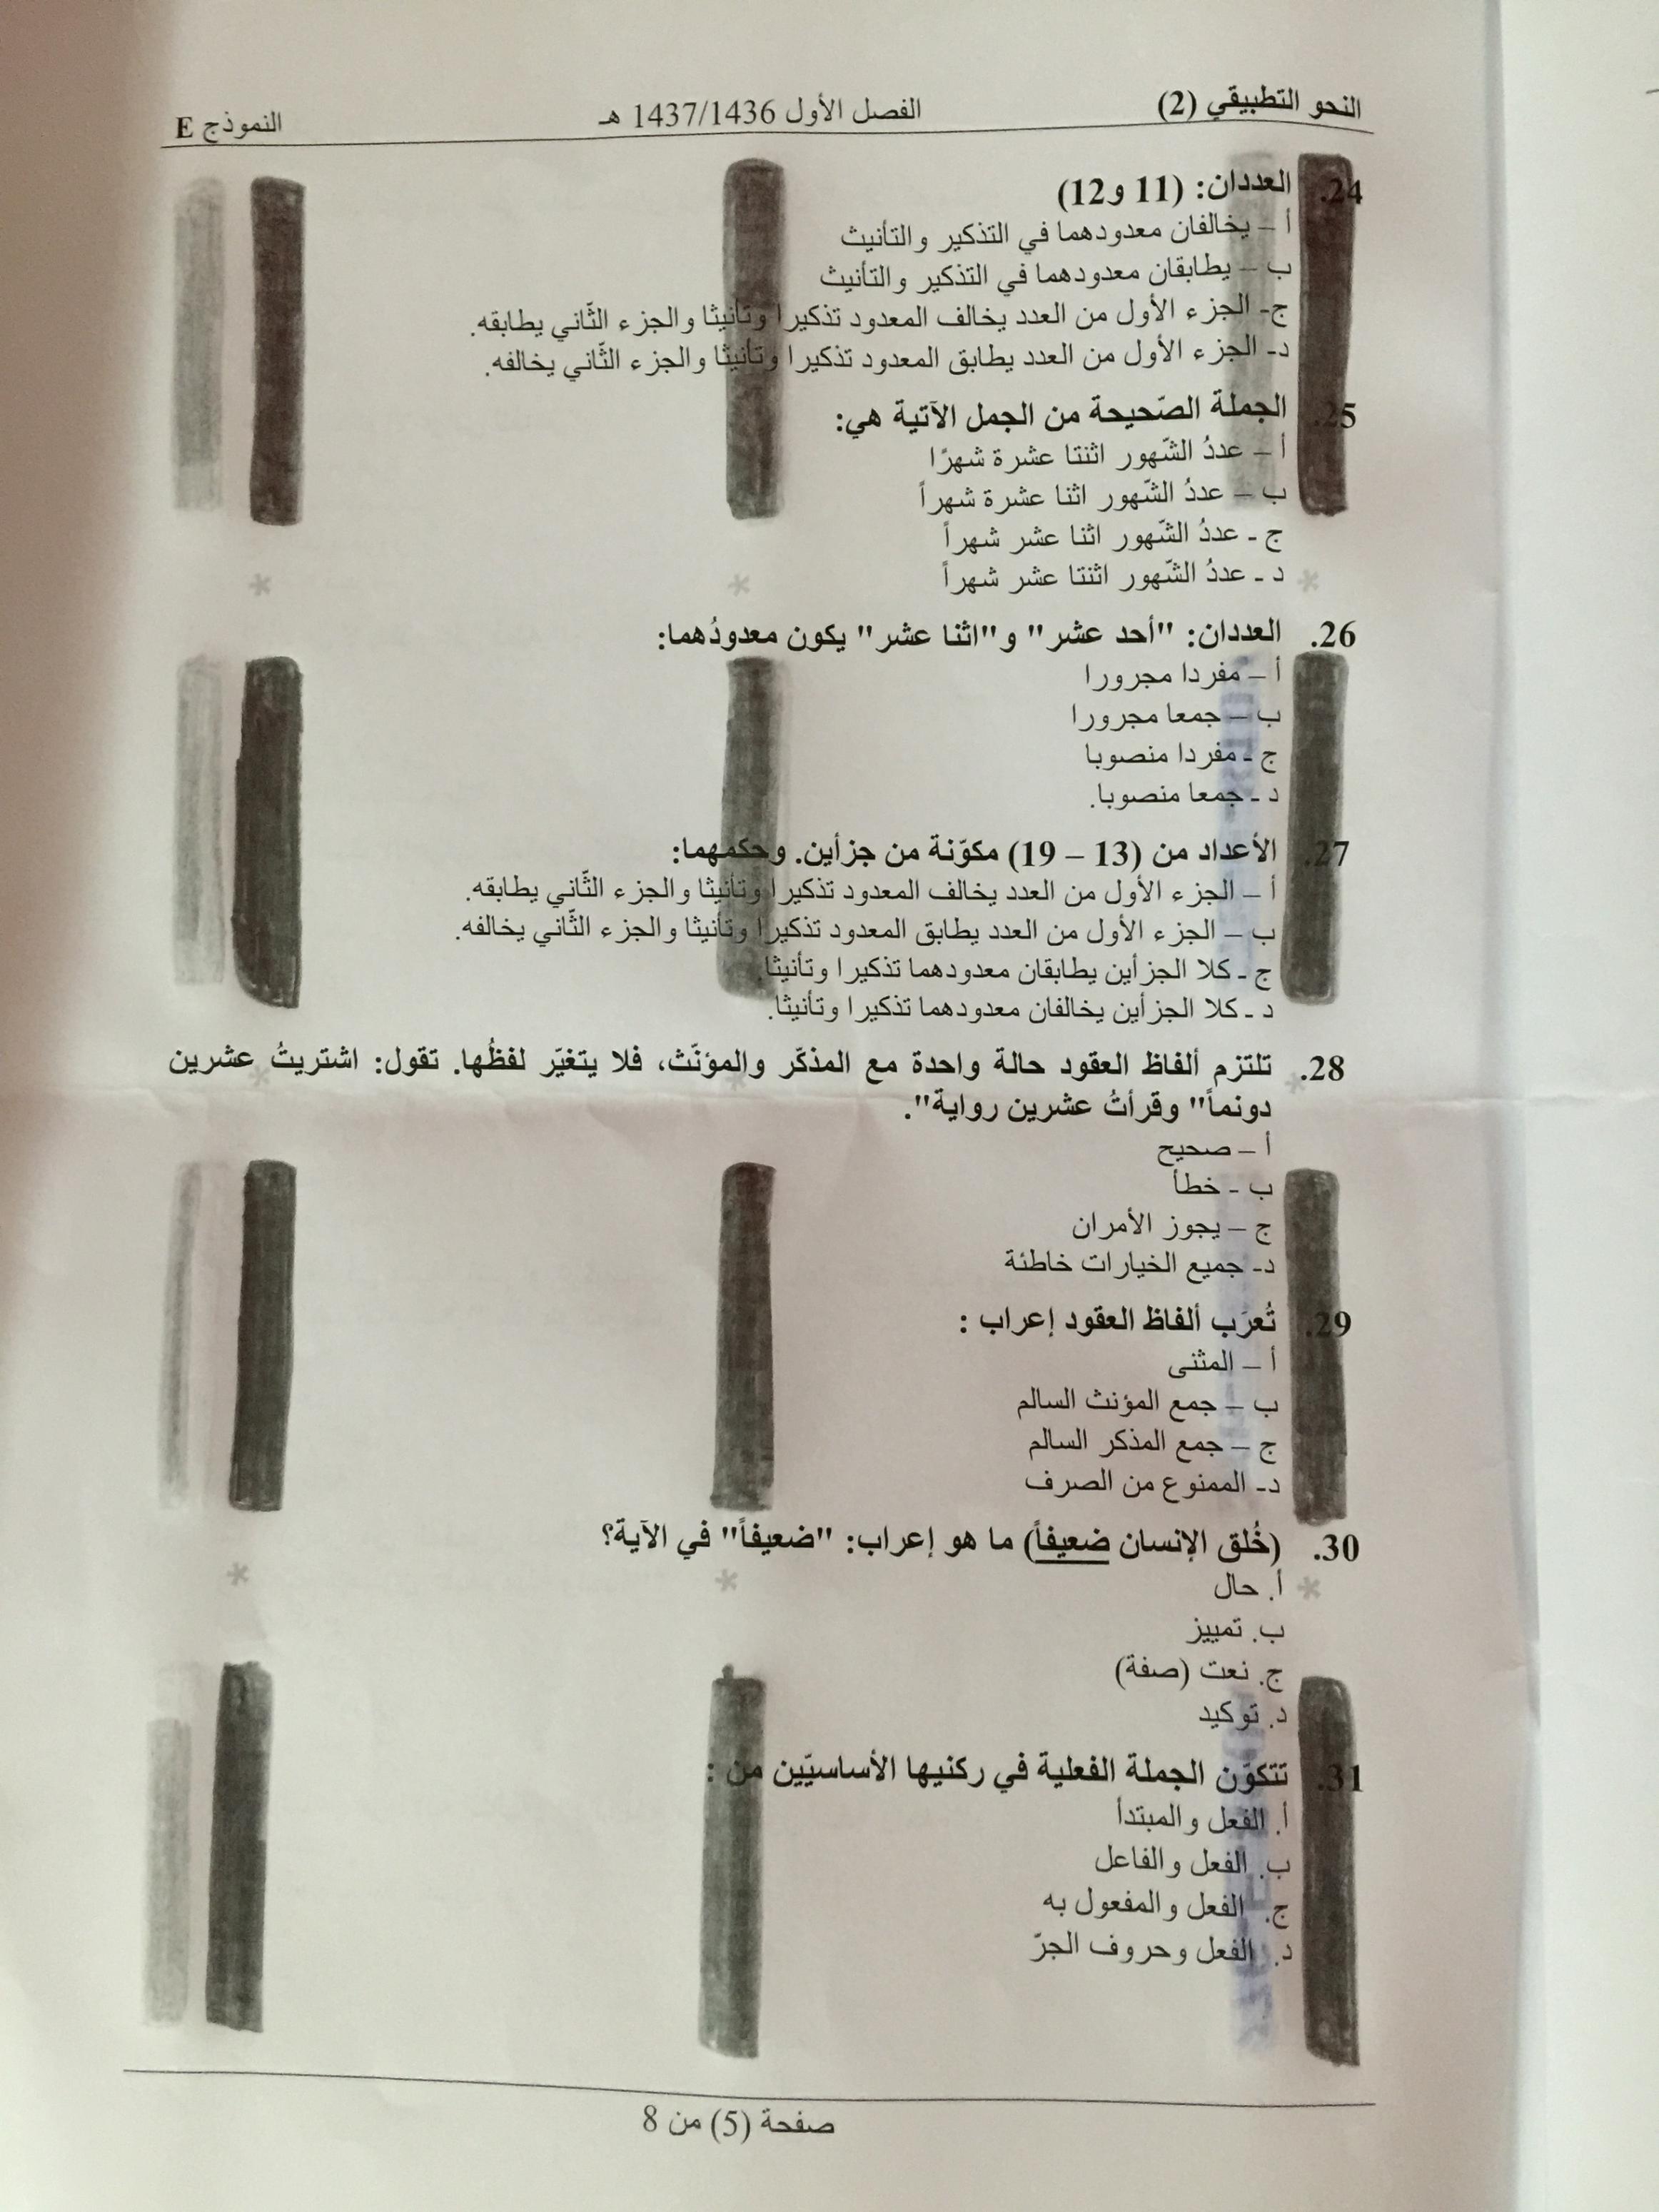 النحو التطبيقي (2) الفصل الأول 1437/1436 هـ النموذج E
24. العددان: (11 و12)
أ – يخالفان معدودهما في التذكير والتأنيث
ب – يطابقان معدودهما في التذكير والتأنيث
ج- الجزء الأول من العدد يخالف المعدود تذكيرا وتأنيثا والجزء الثّاني يطابقه.
د- الجزء الأول من العدد يطابق المعدود تذكيرا وتأنيثا والجزء الثّاني يخالفه.
25. الجملة الصّحيحة من الجمل الآتية هي:
أ – عددُ الشّهور اثنتا عشرة شهرًا
ب – عددُ الشّهور اثنا عشرة شهراً
ج - عددُ الشّهور اثنا عشر شهراً
د - عددُ الشّهور اثنتا عشر شهراً
26. العددان: "أحد عشر" و"اثنا عشر" يكون معدودُهما:
أ – مفردا مجرورا
ب – جمعا مجرورا
ج - مفردا منصوبا
د - جمعا منصوبا.
27. الأعداد من (13 – 19) مكوّنة من جزأين. وحكمهما:
أ – الجزء الأول من العدد يخالف المعدود تذكيرا وتأنيثا والجزء الثّاني يطابقه.
ب – الجزء الأول من العدد يطابق المعدود تذكيرا وتأنيثا والجزء الثّاني يخالفه.
ج - كلا الجزأين يطابقان معدودهما تذكيرا وتأنيثا.
د - كلا الجزأين يخالفان معدودهما تذكيرا وتأنيثا.
28. تلتزم ألفاظ العقود حالة واحدة مع المذكّر والمؤنّث، فلا يتغيّر لفظُها. تقول: اشتريتُ عشرين
دونماً" وقرأتُ عشرين رواية".
أ – صحيح
ب - خطأ
ج – يجوز الأمران
د- جميع الخيارات خاطئة
29. تُعرَب ألفاظ العقود إعراب :
أ – المثنى
ب – جمع المؤنث السالم
ج – جمع المذكر السالم
د- الممنوع من الصرف
30. (خُلق الإنسان ضعيفاً) ما هو إعراب: "ضعيفاً" في الآية؟
أ. حال
ب. تمييز
ج. نعت (صفة)
د. توكيد
31. تتكوّن الجملة الفعلية في ركنيها الأساسيّين من :
أ. الفعل والمبتدأ
ب. الفعل والفاعل
ج. الفعل والمفعول به
د. الفعل وحروف الجرّ
صفحة (5) من 8